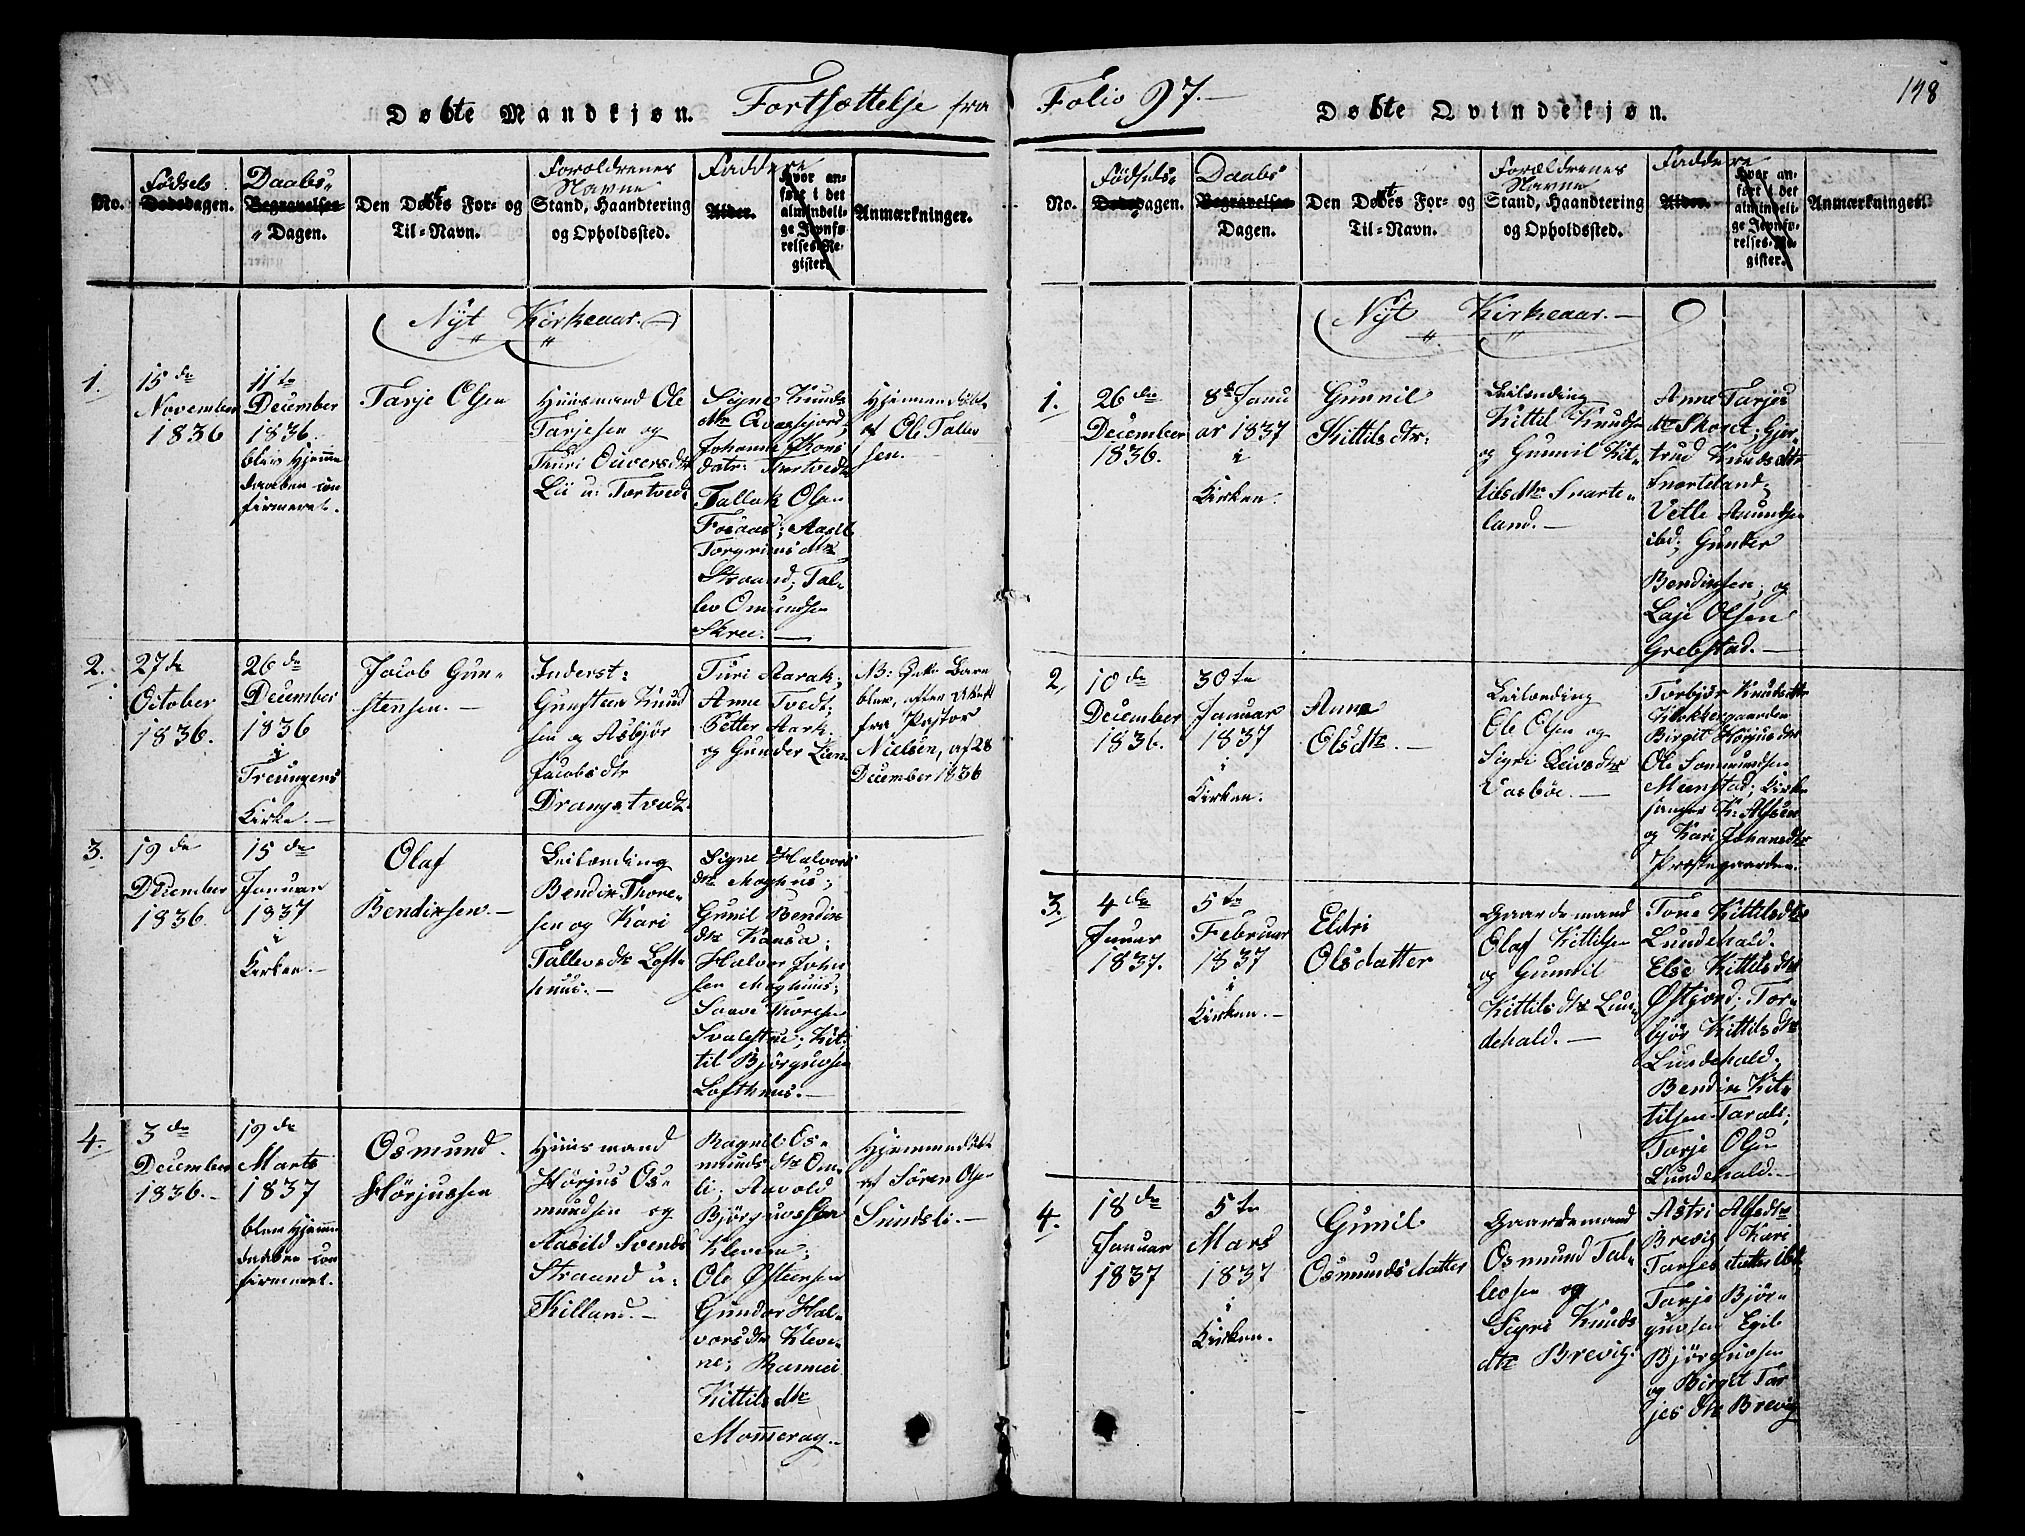 Døbte Mandkjøn. Fortsættelse fra
No.
Fødsels
Dødsdagen.
Daabs-
Begravelses-
" Dagen.
Den Døbtes For- og
Til-Navn.
Forældrenes
Navne
Stand, Haandtering
og Opholdssted.
Faddere
Alder.
Hvor an-
ført i det
almindeli-
ge Jevnfø-
relses-Re-
gister.
Anmærkninger.
Nyt Kirkeaar.
1.
15de
November
1836
11te
December
1836.
blev hjemme
daaben con
firmeret.
Tarje Olsen
Huusmand Ole
Tarjesen og
Turi Ouversdtr
Lii u: Tørtvedt
Signe Knuds
dtr Qvasfjord;
Johanne Kors
datr: Tørtvedt
Tallak Olsen
Fosaas; Aaselt
Torgrimsdtr
Straand; Tal-
lev Omundsen
Skree.
Hjemmedøbt
af Ole Tallev
sen.
2.
27de
October
1836.
26de
December
1836
i
Treungens
Kirke.
Jacob Gun-
stensen.
Inderst:
Gunsteen Knud
sen og Asbjør
Jacobsdtr
Drangetvedt.
Turi Aarak;
Anne Tvedt;
Petter Aark.
og Gunder Lien.
NB: Dette Barn
blev, efter Skrift
fra Pastor
Nielsen, af 28
December 1836
3.
19de
December
1836.
15de
Januar
1837
i
Kirken.
Olaf
Bendixsen.
Leilænding
Bendix Thore-
sen og Kari
Tallevsdtr Loft-
huus.
Signe Halvors
dtr Moghus;
Gunil Bendix
dtr Kansa;
Halvor John
sen Moghuus;
Saave Thoresen
Svalestue; Kit-
til Bjørguvsen
Lofthuus.
4.
3de
December
1836.
19de
Marts
1837
blev hjemme
daaben con
firmeret.
Osmund
Hørjussen
Huusmand
Hørjus Os-
mundsen og
Aasild Svends
Straand u:
Killand.
Ragnil Os-
mundsdtr Om-
li; Aavold
Bjørguvssen
Klevene;
Ole Østensen
Gundor Hal-
vorsdtr Kleve-
ne; Rannei
Kittilsdtr
Momrag.
Hjemmedøbt
af Søren Olsen
Sundsli.
Folio 97.
Døbte Qvindekjøn.
148
No.
Fødsels-
Dødsdagen.
Daabs
Begravelses
Dagen.
Den Døbtes For- og
Til-Navn.
Forældrenes
Navne
Stand, Haandtering
og Opholdssted.
Faddere
Alder.
Hvor an-
ført i det
almindeli-
ge Jevnfø-
relses-Re-
gister.
Anmærkninger.
Nyt Kirkeaar.
1.
26de
December
1836.
8de Janu
ar 1837
i
Kirken.
Gunnil
Kittilsdtr.
Leilænding
Kittil Knudse
og Gunnil Kit-
tilsdtr Snarte-
land.
Anne Tarjus
dtr Skout; Gjer-
trud Knudsdtr
Snarteland;
Vetle Amundsen
ibd; Gunder
Bendixsen, og
Laje Olsen
Grebstad.
2.
10de
December
1836.
30te
Januar
1837
i
Kirken.
Anne
Olsdtr.
Leilænding
Ole Olsen og
Sigri Leivsdtr
Vasbøe.
Torbjør Knudsdtr
Klokkergaarden
Birgit Hørjusdtr
Ole Sommundsen
Muustad; Kirke
sanger K. Alfsen
og Kari Johansdtr
Præstegaarden.
3.
4de
Januar
1837.
5te
Februar
1837
i
Kirken.
Eldri
Olsdatter
Gaardemand
Olaf Kittilsen
og Gunnil
Kittilsdtr Lun-
dehald.
Tone Kittilsdtr
Lundehald.
Else Kittilsdtr
Østjord; Tor-
bjør Kittilsdtr
Lundehald;
Bendix Kit-
tilsen Tarals;
Tarje Olsen
Lundehald.
4.
18de
Januar
1837
5te
Mars
1837
i
Kirken.
Gunil
Osmundsdatter
Gaardemand
Osmund Tal-
levsen og
Sigri Knuds
dtr Brevig.
Astri Alfsdtr
Brevig Kari
Tarjesdatter ibd;
Tarje Bjør-
guvsen Egil
Bjørguvsen
og Birgit Tar
jesdtr Brevig